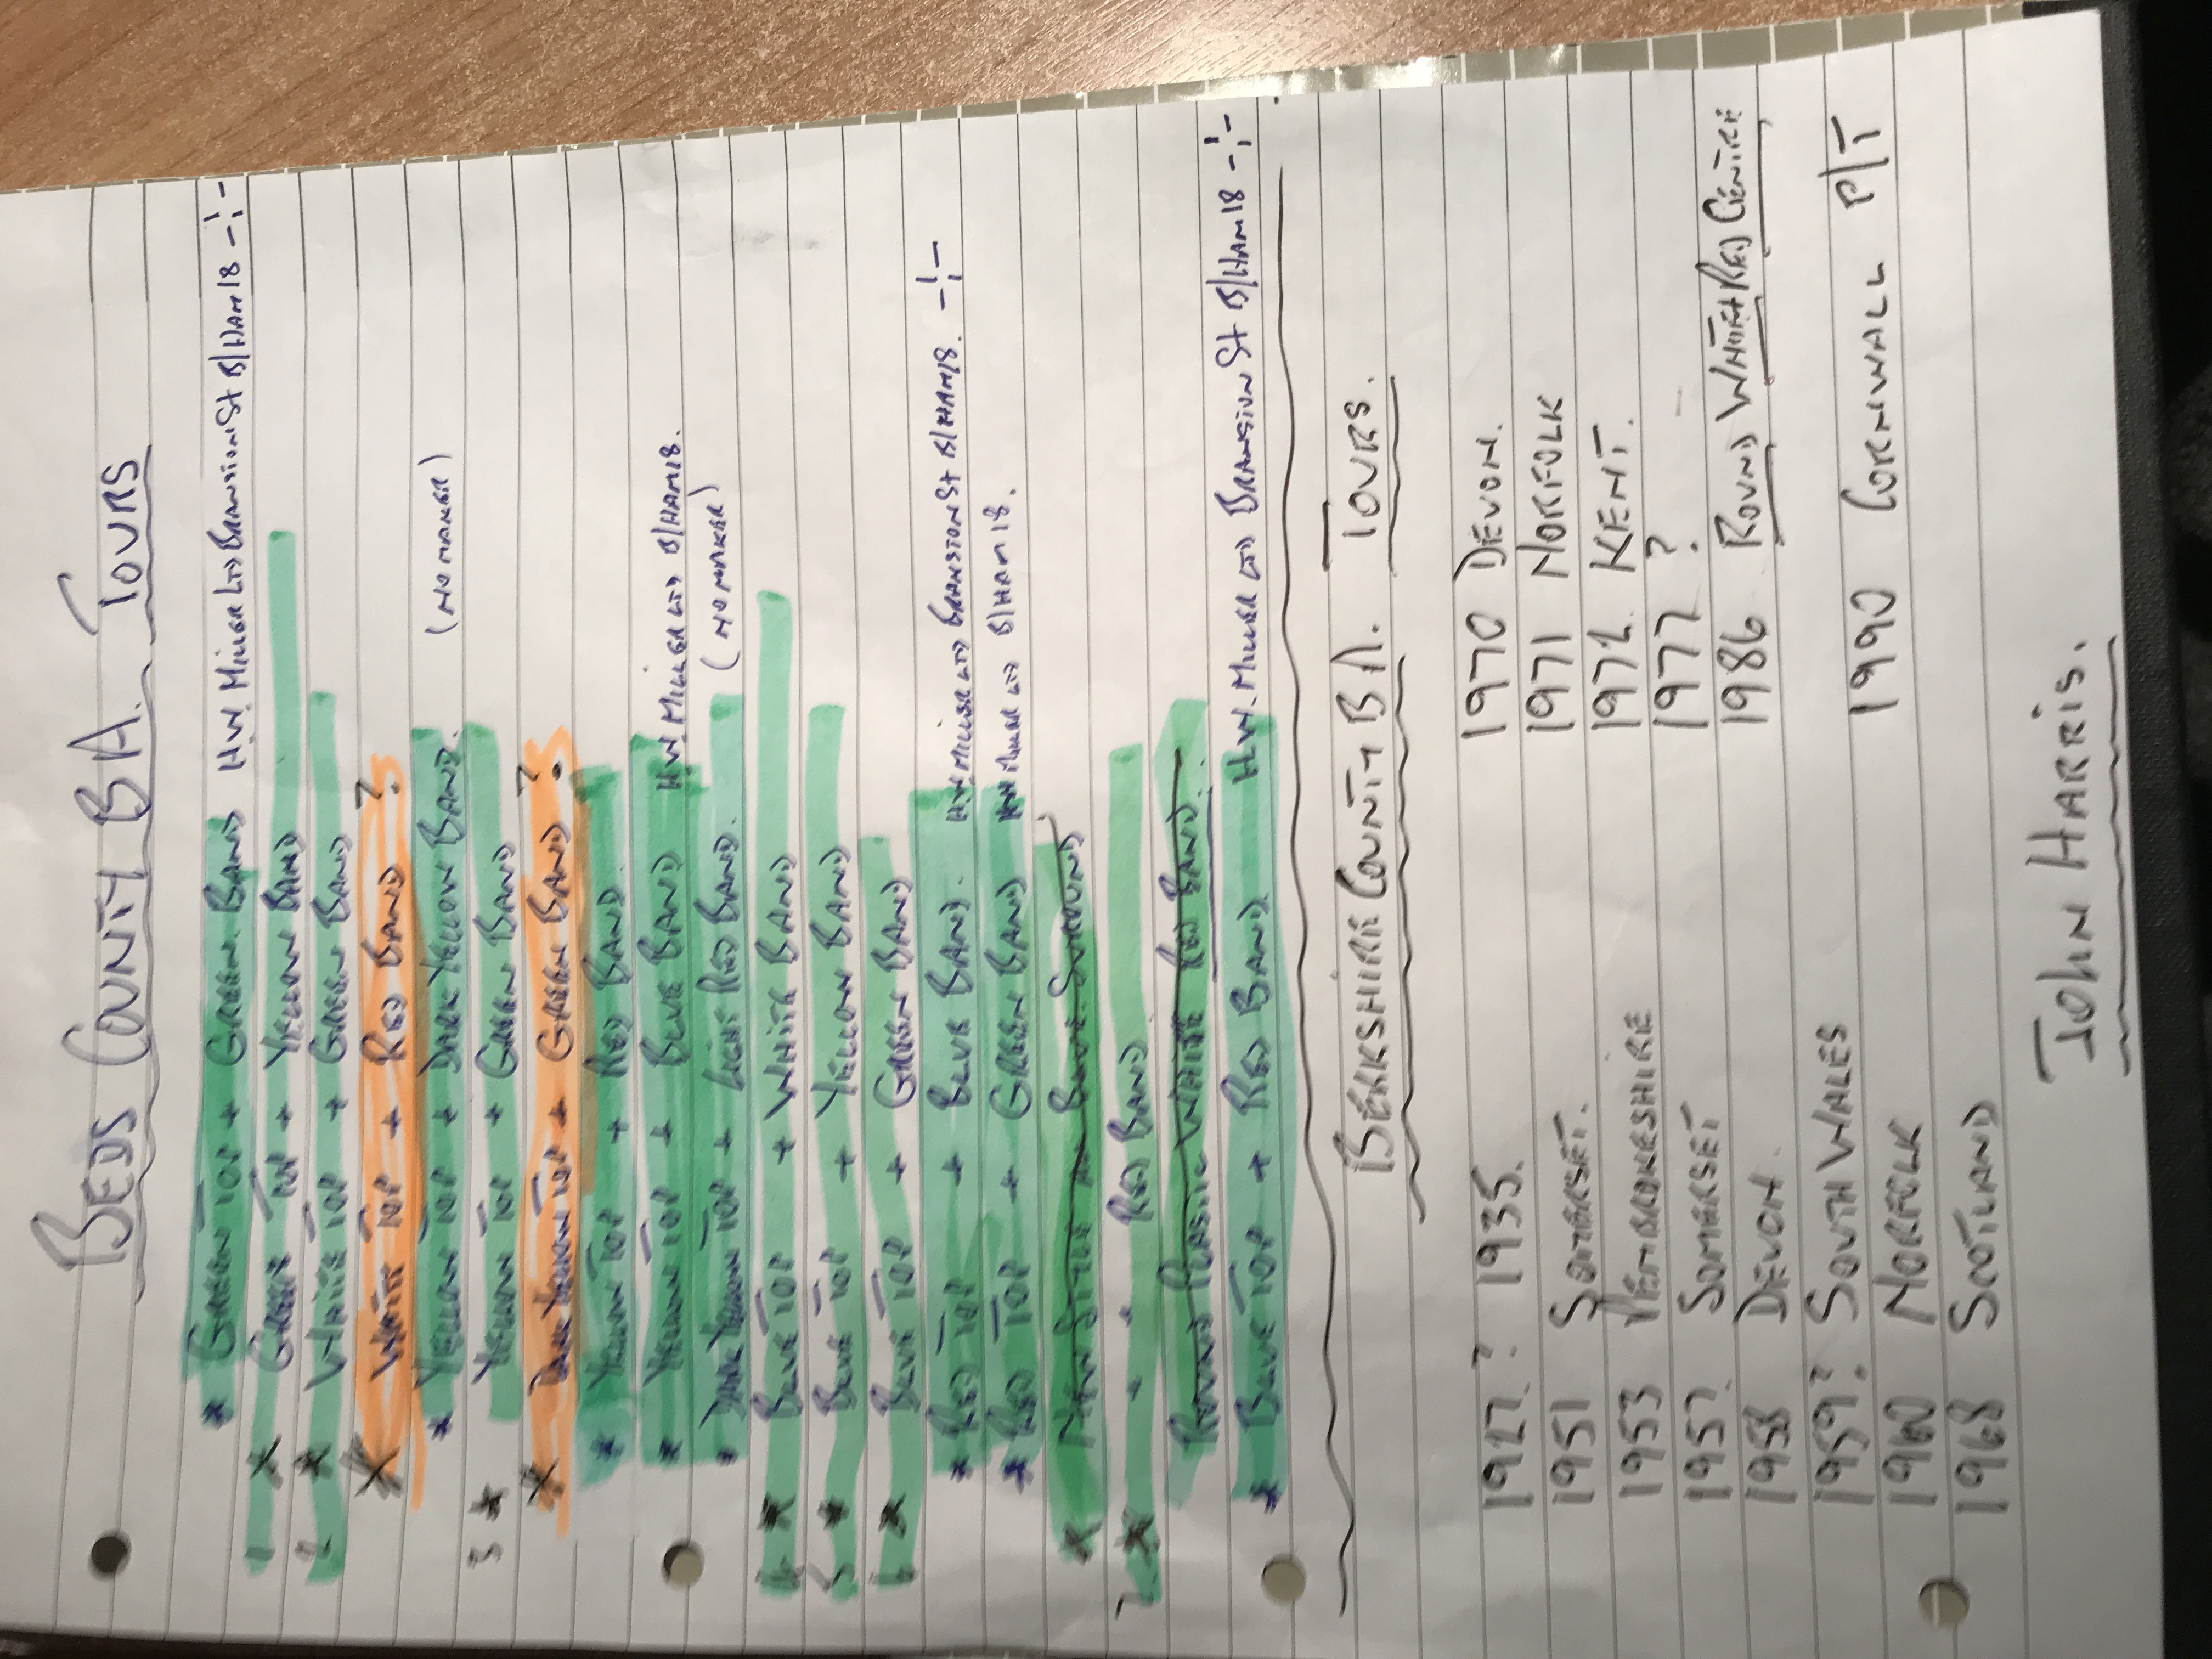 BEDS COUNTY B.A. TOURS
* GREEN TOP + GREEN BAND H.W. MILLER LTD BRANSTON ST B/HAM 18 -¦-
1 * GREEN TOP + YELLOW BAND
2 * WHITE TOP + GREEN BAND
* WHITE TOP + RED BAND ?
* YELLOW TOP + DARK YELLOW BAND. (NO MAKER)
3 * YELLOW TOP + GREEN BAND
* DARK YELLOW TOP + GREEN BAND ?
* YELLOW TOP + RED BAND.
* YELLOW TOP + BLUE BAND H.W MILLER LTD B/HAM 18.
* DARK YELLOW TOP + LIGHT RED BAND. (NO MAKER)
4 * BLUE TOP + WHITE BAND
5 * BLUE TOP + YELLOW BAND
6 * BLUE TOP + GREEN BAND
* RED TOP + BLUE BAND. H.W MILLER LTD BRANSTON ST B/HAM 18. -¦-
* RED TOP + GREEN BAND H.W MILLER LTD B/HAM 18.
* NEW STYLE BLUE SURROUND
7 * " + RED BAND
ROUND PLASTIC WHITE RED BAND.
* BLUE TOP + RED BAND. H.W. MILLER LTD BRANSTON ST B/HAM 18 -¦-
BERKSHIRE COUNTY B.A. TOURS.
1927? 1935. 1970 DEVON.
1951 SOMERSET. 1971 NORFOLK
1953 PEMBROKESHIRE 1972. KENT.
1957. SOMERSET 1977 ?
1958 DEVON. 1986 ROUND WHITE + RED CENTRE
1959? SOUTH WALES
1960 NORFOLK 1990 CORNWALL P/T
1968 SCOTLAND
JOHN HARRIS.